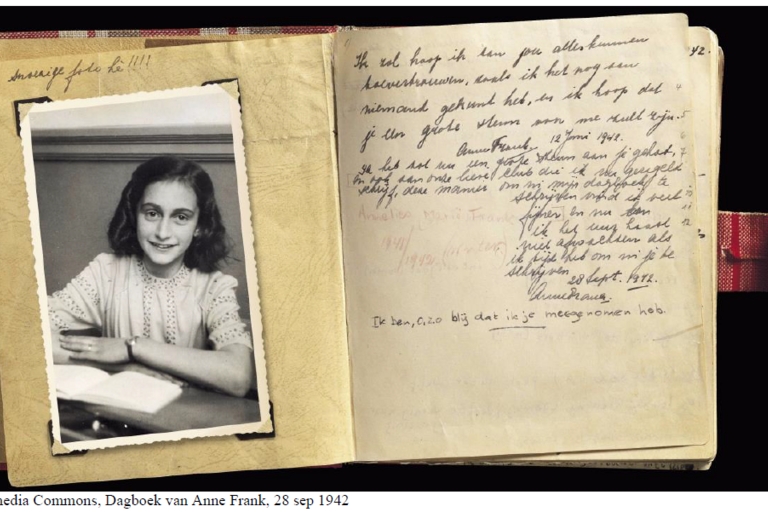 snoezige foto hè!!!!
Ik zal hoop ik aan jou alles kunnen
toevertrouwen, zoals ik het nog aan
niemand gekund heb, en ik hoop dat
je een grote steun voor me zult zijn.
Anne Frank. 12 Juni 1942.
Ik heb tot nu een grote steun aan je gehad,
en ook aan onze lieve club die ik nu geregeld
schrijf, deze manier om in mijn dagboek te
schrijven vind ik veel
fijner en nu kan
ik het uur haast
niet afwachten als
ik tijd heb om in je te
schrijven.
28 Sept. 1942.
Anne Frank.
Ik ben, O, zo blij dat ik je meegenomen heb.
42.
media Commons, Dagboek van Anne Frank, 28 sep 1942